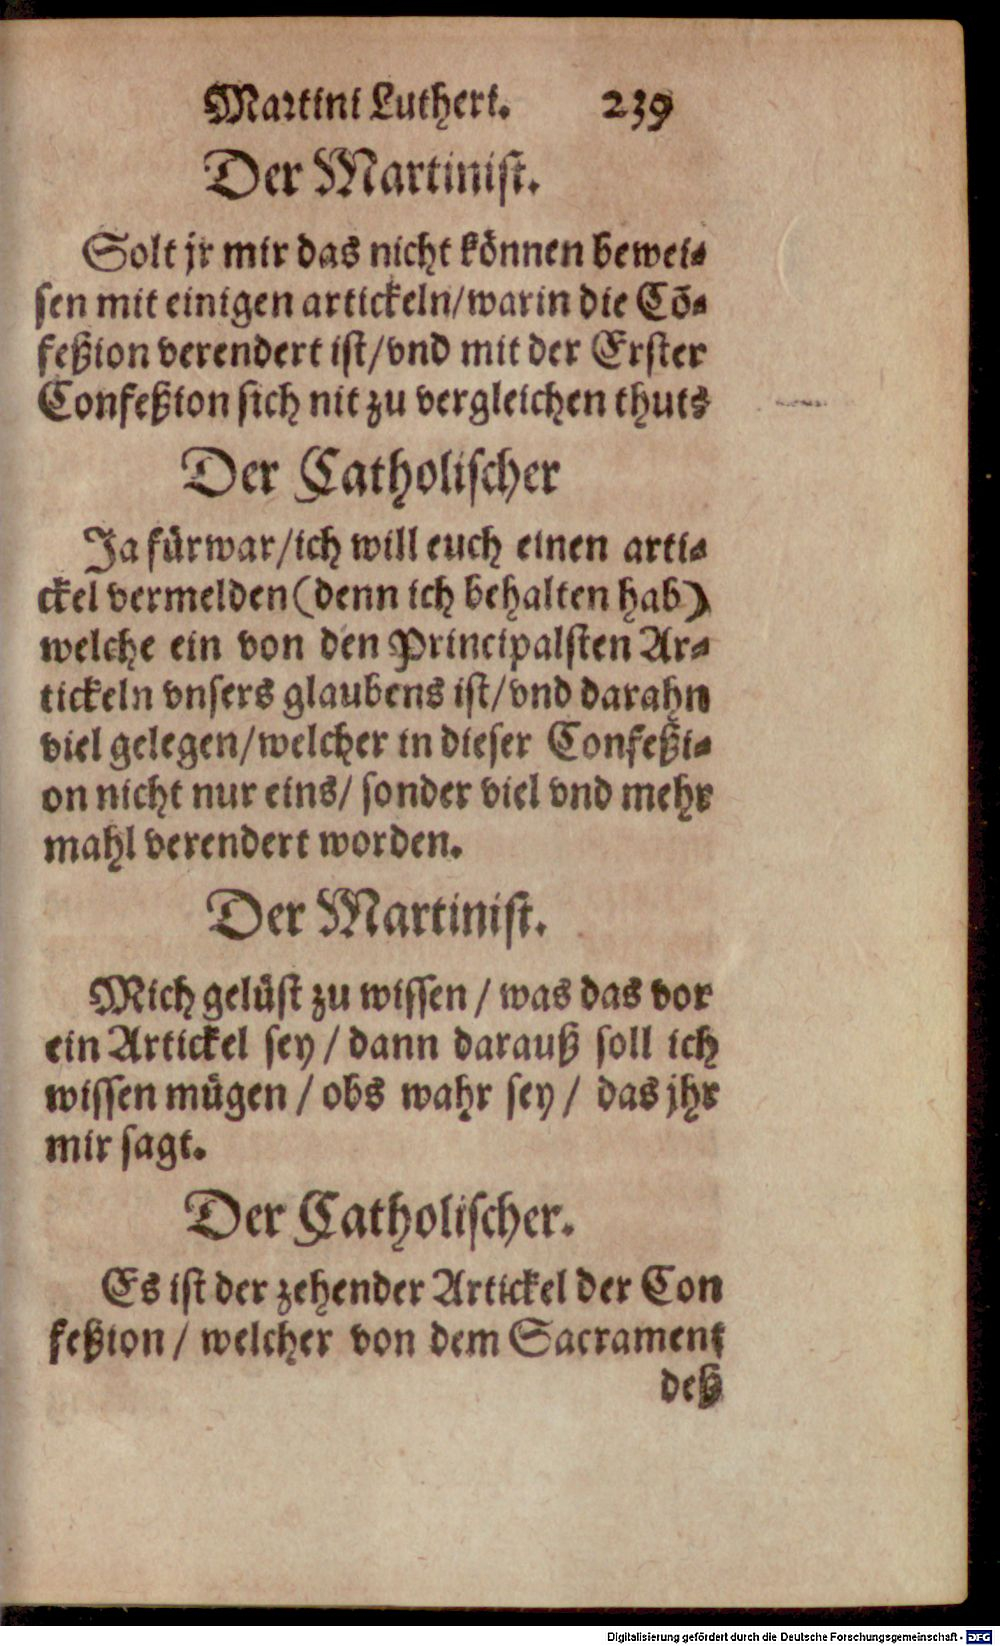 Martini Lutheri. 239
Der Martinist.
Solt jr mir das nicht können bewei⸗
sen mit einigen artickeln/warin die Cō⸗
feßion verendert ist/vnd mit der Erster
Confeßion sich nit zu vergleichen thuts
Der Catholischer
Ja fürwar/ich will euch einen arti⸗
ckel vermelden (denn ich behalten hab)
welche ein von den Principalsten Ar⸗
tickeln vnsers glaubens ist/vnd darahn
viel gelegen/welcher in dieser Confeßi⸗
on nicht nur eins/ sonder viel vnd mehr
mahl verendert worden.
Der Martinist.
Mich gelüst zu wissen / was das vor
ein Artickel sey / dann darauß soll ich
wissen mügen / obs wahr sey / das jhr
mir sagt.
Der Catholischer.
Es ist der zehender Artickel der Con
feßion / welcher von dem Sacrament
deß
Digitalisierung gefördert durch die Deutsche Forschungsgemeinschaft - DFG